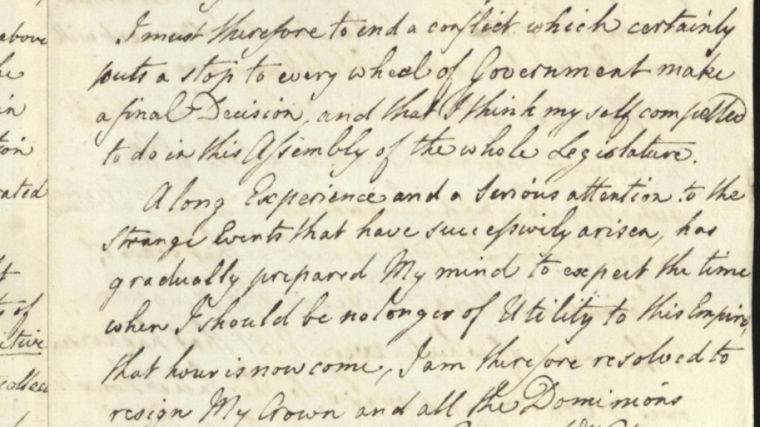 above
in
I must therefore to end a conflict which certainly
puts a stop to every wheel of Government make
a final Decision, and that I think myself compelled
to do in this Assembly of the whole Legislature.
A long Experience and a serious attention to the
strange Events that have successively arisen, has
gradually prepared My mind to expect the time
when I should be no longer of Utility to this Empire,
that hour is now come, I am therefore resolved to
resign My Crown and all the Dominions
of